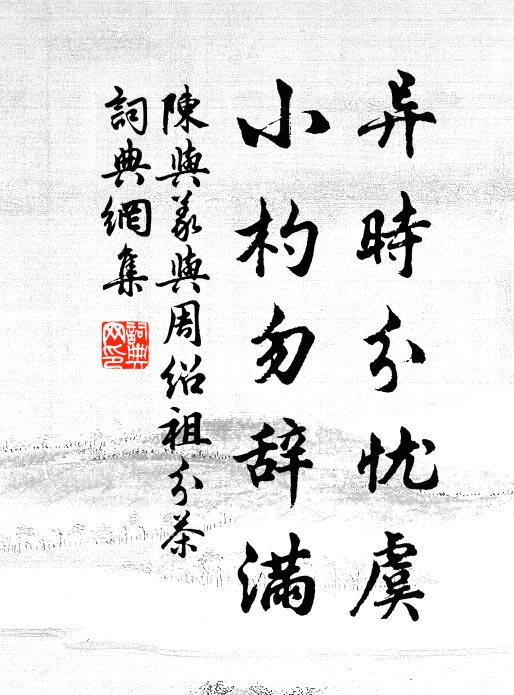 异時分忧虞
小杓勿辞滿
陳與義與周紹祖分茶
詞典網集
詞典
网印